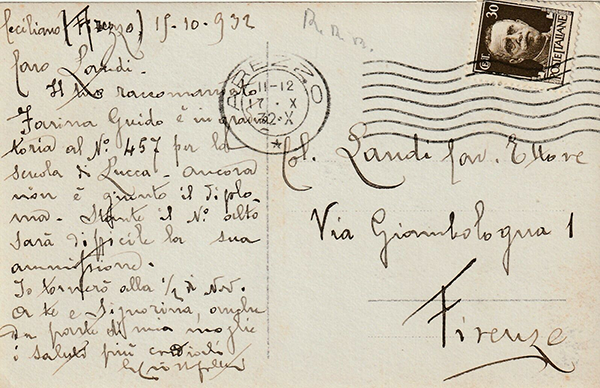 Ceciliano (Arezzo) 15-10-932
Caro Landi.
Il tuo raccomandato
Farina Guido è in gradua
toria al N.° 457 per la
scuola di Lucca. ancora
non è giunto il diplo-
ma. Stante il N.° alto
sarà difficile la sua
ammissione.
Io tornerò alla 1/2 di Nov.
A te e Signorina, anche
da parte di mia moglie
i saluti più cordiali
R. R. R.
AREZZO
11-12
17 · X
32·X
30
POSTE ITALIANE
Col. Landi Cav. Ettore
Via Giambologna 1
Firenze